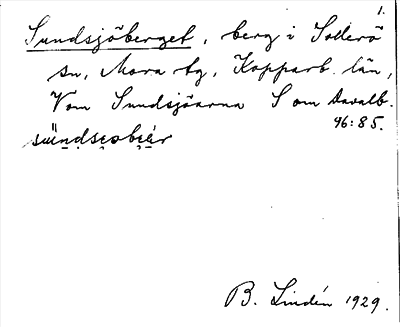 1.
Sundsjöberget, berg i Sollerö
sn, Mora tg, Kopparb. län,
V om Sundsjöarna S om Davalb.
46:85.
B. Lindén 1929.